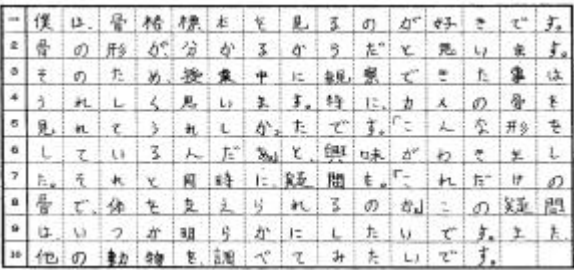 一 僕は、骨格標本を見るのが好きです。
2 骨の形が、分かるからだと思います。
3 そのため、授業中に観察できた事は
4 うれしく思います。特に、カメの骨を
5 見れてうれしかったです。「こんな形を
6 しているんだぁ」と、興味がわきまし
7 た。それと同時に、疑問も。「これだけの
8 骨で、体を支えられるのか」この疑問
9 は、いつか明らかにしたいです。また、
10 他の動物を、調べてみたいです。